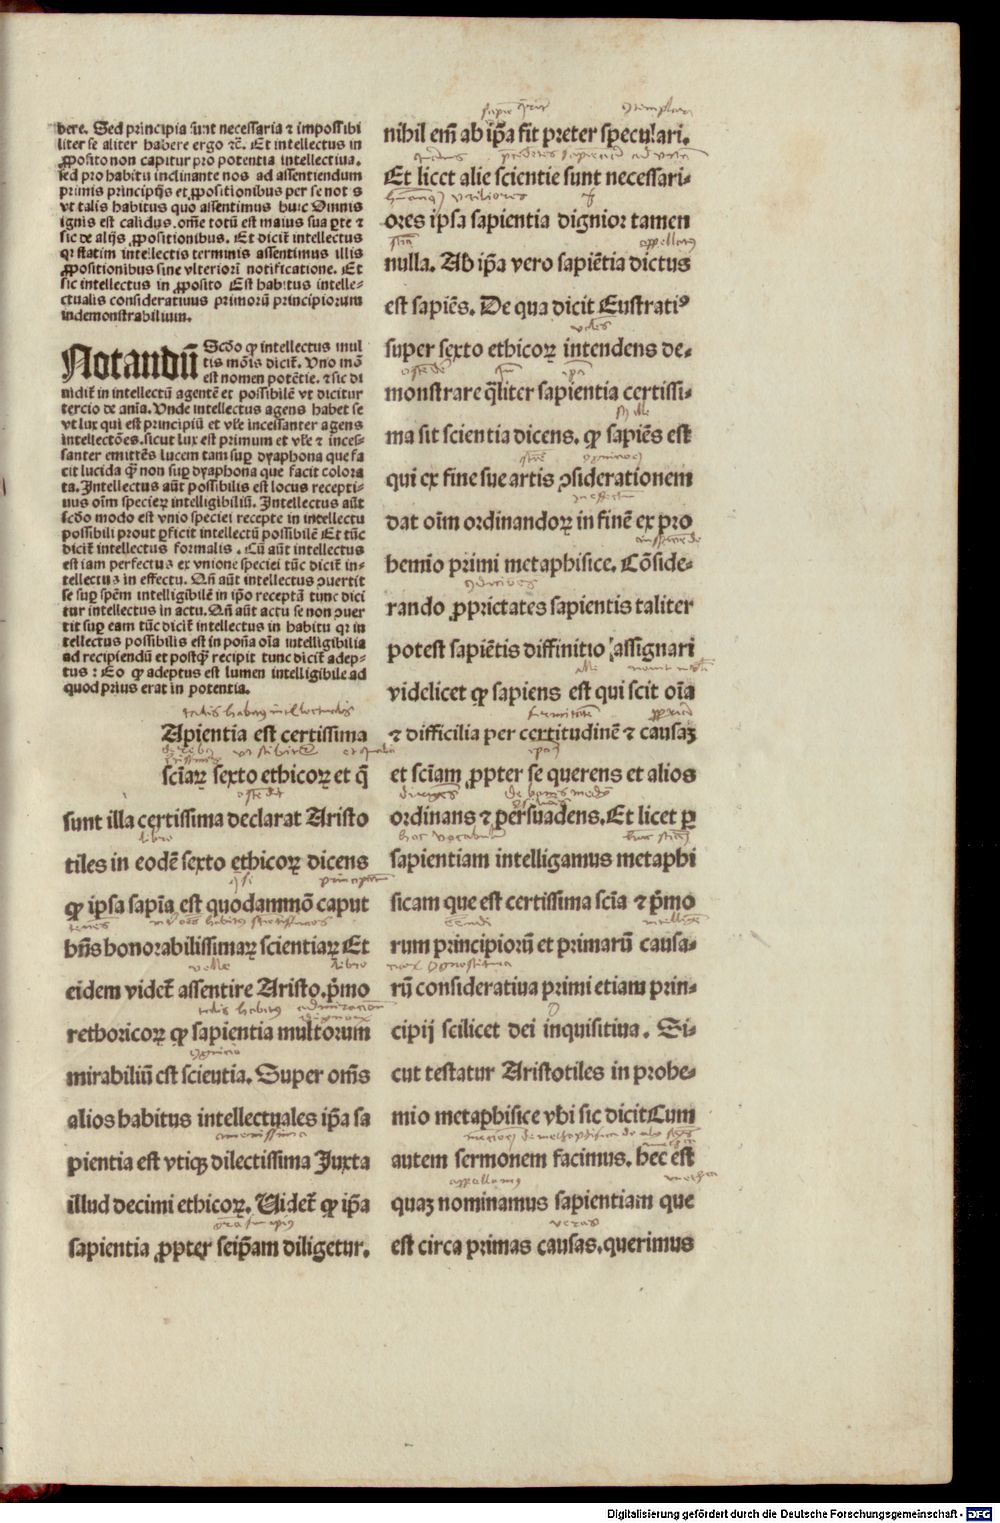 bere. Sed principia sunt necessaria ⁊ impossibi
liter se aliter habere ergo ⁊c̄. Et intellectus in
ꝓposito non capitur pro potentia intellectiua.
sed pro habitu inclinante nos ad assentiendum
primis principijs et ꝓpositionibus per se not s
vt talis habitus quo assentimus huic Omnis
ignis est calidus. om̄e totū est maius sua ꝑte ⁊
sic de alijs ꝓpositionibus. Et dicit̄ intellectus
qr statim intellectis terminis assentimus illis
ꝓpositionibus sine vlteriori notificatione. Et
sic intellectus in ꝓposito Est habitus intelle-
ctualis consideratiuus primorū principiorum
indemonstrabilium.
Notandū Scḋo ꝙ intellectus mul
tis mōis dicit̄. Vno mō
est nomen potētie. ⁊ sic di
uidit̄ in intellectū agentē et possibilē vt dicitur
tercio de aīa. Vnde intellectus agens habet se
vt lux qui est principiū et vl̄e incessanter agens
intellectōes. sicut lux est primum et vl̄e ⁊ inces-
santer emittēs lucem tam suꝑ dyaphona que fa
cit lucida q̄ȝ non suꝑ dyaphona que facit colora
ta. Intellectus aūt possibilis est locus recepti-
uus oīm specieꝝ intelligibiliū. Intellectus aūt
scḋo modo est vnio speciei recepte in intellectu
possibili prout ꝑficit intellectū possibilē Et tūc
dicit̄ intellectus formalis. Cū aūt intellectus
est iam perfectus ex vnione speciei tūc dicit̄ in-
tellectus in effectu. Qn̄ aūt intellectus ꝯuertit
se suꝑ spēm intelligibilē in ip̄o receptā tunc dici
tur intellectus in actu. Qn̄ aūt actu se non ꝯuer
tit suꝑ eam tūc dicit̄ intellectus in habitu qr in
tellectus possibilis est in pon̄a oīa intelligibilia
ad recipiendū et postq̄ȝ recipit tunc dicit̄ adep-
tus: Eo ꝙ adeptus est lumen intelligibile ad
quod prius erat in potentia.
talis habitus intellectualis
Apientia est certissima
scīaꝝ sexto ethicoꝝ et q̄
sunt illa certissima declarat Aristo
libro
tiles in eodē sexto ethicoꝝ dicens
ꝙ ipsa sapīa est quodammō caput
bn̄s honorabilissimaꝝ scientiaꝝ Et
libro
eidem videt̄ assentire Aristo. p̄mo
talis habitus
rethoricoꝝ ꝙ sapientia multorum
mirabiliū est scientia. Super om̄s
alios habitus intellectuales ip̄a sa
amenissima
pientia est vtiqȝ dilectissima Juxta
illud decimi ethicoꝝ. Videt̄ ꝙ ip̄a
sapientia ꝓpter seip̄am diligetur.
nihil em̄ ab ip̄a fit preter speculari.
Et licet alie scientie sunt necessari-
vtiliores
ores ipsa sapientia dignior tamen
nulla. Ab ip̄a vero sapiētia dictus
est sapiēs. De qua dicit Eustratiꝰ
super sexto ethicoꝝ intendens de-
monstrare q̄liter sapientia certissi-
ma sit scientia dicens. ꝙ sapiēs est
qui ex fine sue artis ꝯsiderationem
dat oīm ordinandoꝝ in finē ex pro
hemio primi metaphisice. Cōside-
rando ꝓprietates sapientis taliter
potest sapiētis diffinitio assignari
videlicet ꝙ sapiens est qui scit oīa
⁊ difficilia per certitudinē ⁊ causaȝ
et scīam ꝓpter se querens et alios
ordinans ⁊ persuadens. Et licet ꝑ
hoc vocabulum
sapientiam intelligamus metaphi
sicam que est certissima scīa ⁊ p̄mo
rum principiorū et primarū causa-
rū consideratiua primi etiam prin-
cipij scilicet dei inquisitiua. Si-
cut testatur Aristotiles in prohe-
mio metaphisice vbi sic dicit Cum
autem sermonem facimus. hec est
appellamus
quaȝ nominamus sapientiam que
veras
est circa primas causas. querimus
Digitalisierung gefördert durch die Deutsche Forschungsgemeinschaft - DFG